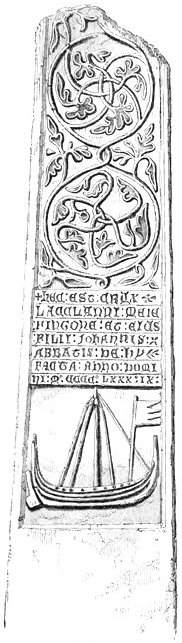 + HEC : EST : CRUX :
LACCLANNI : MEIC
FINGONE : ET : EIUS
FILII : JOHANNIS :
ABBATIS : DE : HY :
FACTA : ANNO : DOMI
NI : M : CCCC : LXXX : IX :